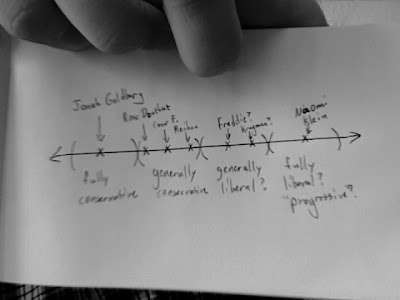 Jonah Goldberg
Ross Douthat
Conor F.
Reihan
Freddie?
Krugman?
Naomi
Klein
fully
conservative
generally
conservative
generally
liberal?
fully
liberal?
"progressive"?